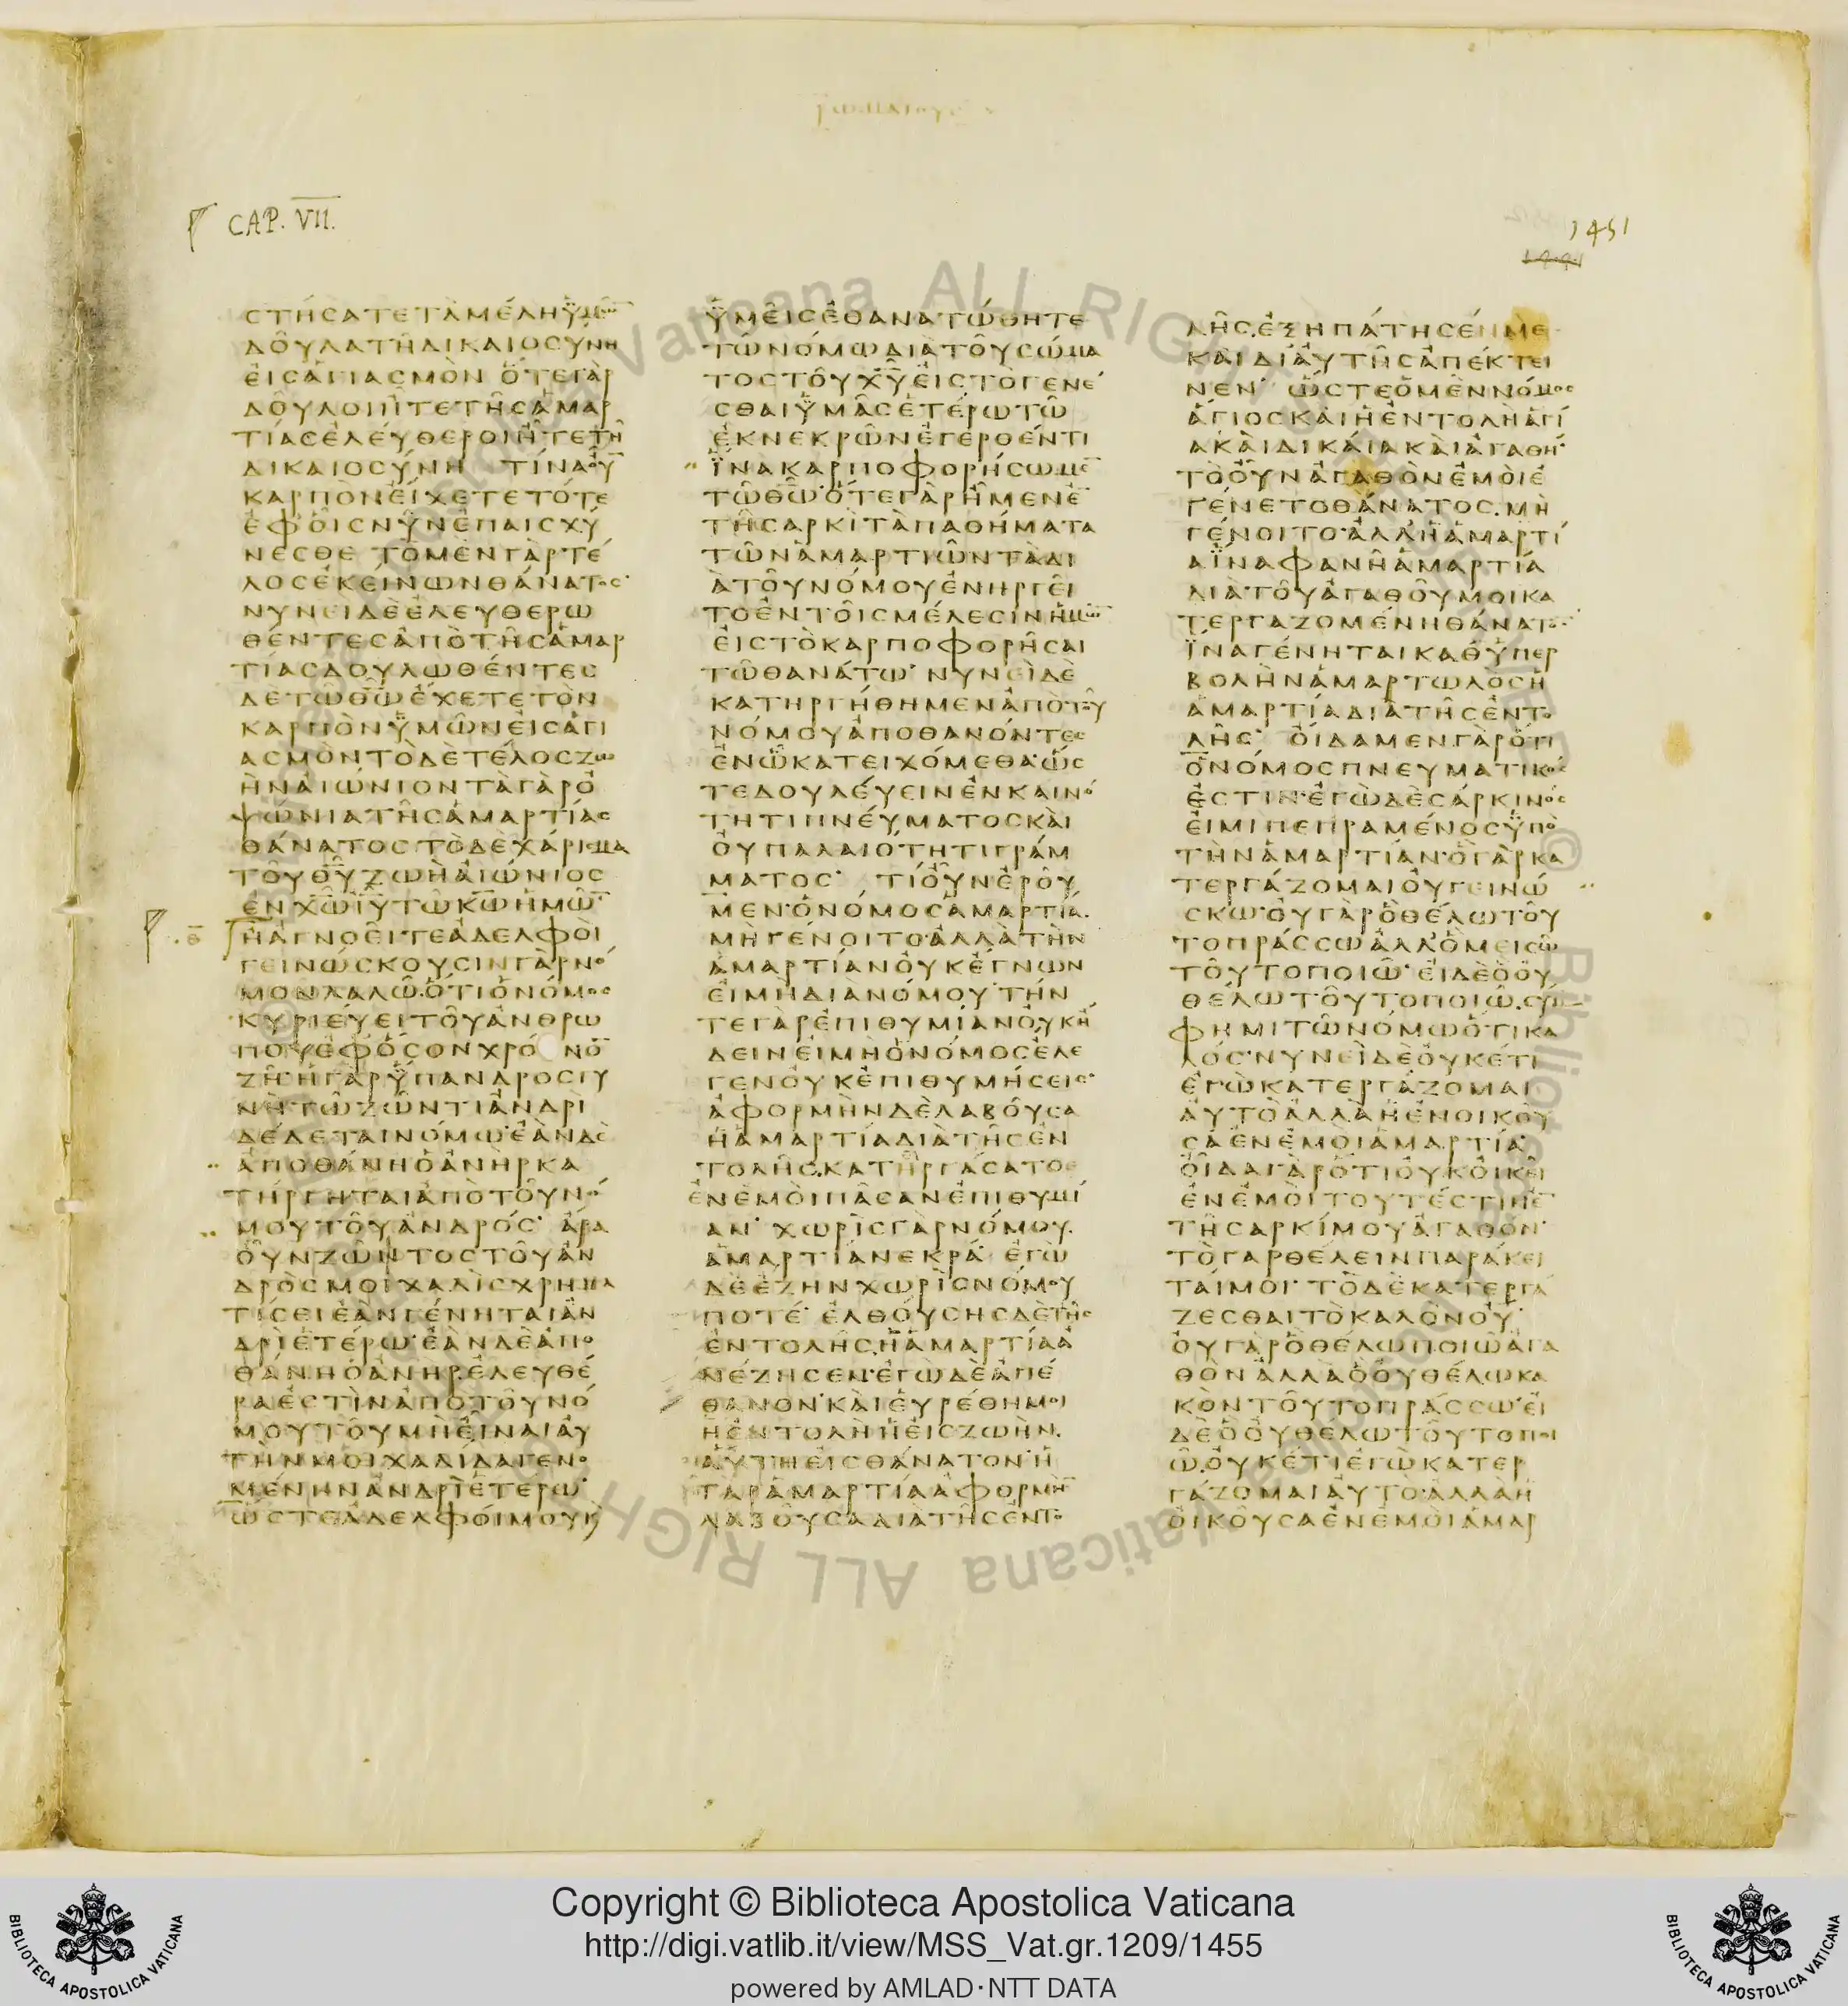 CAP. VII.
1451
ϹΤΗϹΑΤΕΤΑΜΕΛΗΥΜΩ̅
ΔΟΥΛΑΤΗΔΙΚΑΙΟϹΥΝΗ
ΕΙϹΑΓΙΑϹΜΟΝ ΟΤΕΓΑΡ
ΔΟΥΛΟΙΗΤΕΤΗϹΑΜΑΡ
ΤΙΑϹΕΛΕΥΘΕΡΟΙΗΤΕΤΗ
ΔΙΚΑΙΟϹΥΝΗ ΤΙΝΑΟΥ̅
ΚΑΡΠΟΝΕΙΧΕΤΕΤΟΤΕ
ΕΦΟΙϹΝΥΝΕΠΑΙϹΧΥ
ΝΕϹΘΕ ΤΟΜΕΝΓΑΡΤΕ
ΛΟϹΕΚΕΙΝΩΝΘΑΝΑΤΟϹ
ΝΥΝΕΙΔΕΕΛΕΥΘΕΡΩ
ΘΕΝΤΕϹΑΠΟΤΗϹΑΜΑΡ
ΤΙΑϹΔΟΥΛΩΘΕΝΤΕϹ
ΔΕΤΩΘ̅Ω̅ΕΧΕΤΕΤΟΝ
ΚΑΡΠΟΝΥΜΩΝΕΙϹΑΓΙ
ΑϹΜΟΝΤΟΔΕΤΕΛΟϹΖΩ
ΗΝΑΙΩΝΙΟΝΤΑΓΑΡΟ
ΨΩΝΙΑΤΗϹΑΜΑΡΤΙΑϹ
ΘΑΝΑΤΟϹΤΟΔΕΧΑΡΙϹΜΑ
ΤΟΥΘ̅Υ̅ΖΩΗΑΙΩΝΙΟϹ
ΕΝΧ̅Ω̅Ι̅Υ̅ΤΩΚ̅Ω̅ΗΜΩ̅
ΗΑΓΝΟΕΙΤΕΑΔΕΛΦΟΙ
ΓΕΙΝΩϹΚΟΥϹΙΝΓΑΡΝΟ
ΜΟΝΛΑΛΩΟΤΙΟΝΟΜΟϹ
ΚΥΡΙΕΥΕΙΤΟΥΑΝΘΡΩ
ΠΟΥΕΦΟϹΟΝΧΡΟ ΝΟ̅
ΖΗΗΓΑΡΥΠΑΝΔΡΟϹΓΥ
ΝΗΤΩΖΩΝΤΙΑΝΔΡΙ
ΔΕΔΕΤΑΙΝΟΜΩΕΑΝΔΕ
ΑΠΟΘΑΝΗΟΑΝΗΡΚΑ
ΤΗΡΓΗΤΑΙΑΠΟΤΟΥΝΟ
ΜΟΥΤΟΥΑΝΔΡΟϹ ΑΡΑ
ΟΥΝΖΩΝΤΟϹΤΟΥΑΝ
ΔΡΟϹΜΟΙΧΑΛΙϹΧΡΗΜΑ
ΤΙϹΕΙΕΑΝΓΕΝΗΤΑΙΑΝ
ΔΡΙΕΤΕΡΩΕΑΝΔΕΑΠΟ
ΘΑΝΗΟΑΝΗΡΕΛΕΥΘΕ
ΡΑΕϹΤΙΝΑΠΟΤΟΥΝΟ
ΜΟΥΤΟΥΜΗΕΙΝΑΙΑΥ
ΤΗΝΜΟΙΧΑΛΙΔΑΓΕΝΟ
ΜΕΝΗΝΑΝΔΡΙΕΤΕΡΩ
ΩϹΤΕΑΔΕΛΦΟΙΜΟΥΚ
ΥΜΕΙϹΕΘΑΝΑΤΩΘΗΤΕ
ΤΩΝΟΜΩΔΙΑΤΟΥϹΩΜΑ
ΤΟϹΤΟΥΧ̅Υ̅ΕΙϹΤΟΓΕΝΕ
ϹΘΑΙΥΜΑϹΕΤΕΡΩΤΩ
ΕΚΝΕΚΡΩΝΕΓΕΡΘΕΝΤΙ
ΙΝΑΚΑΡΠΟΦΟΡΗϹΩΜΕ̅
ΤΩΘ̅Ω̅ΟΤΕΓΑΡΗΜΕΝΕ̅
ΤΗϹΑΡΚΙΤΑΠΑΘΗΜΑΤΑ
ΤΩΝΑΜΑΡΤΙΩΝΤΑΔΙ
ΑΤΟΥΝΟΜΟΥΕΝΗΡΓΕΙ
ΤΟΕΝΤΟΙϹΜΕΛΕϹΙΝΗΜΩ̅
ΕΙϹΤΟΚΑΡΠΟΦΟΡΗϹΑΙ
ΤΩΘΑΝΑΤΩ ΝΥΝΕΙΔΕ
ΚΑΤΗΡΓΗΘΗΜΕΝΑΠΟΤΟΥ
ΝΟΜΟΥΑΠΟΘΑΝΟΝΤΕϹ
ΕΝΩΚΑΤΕΙΧΟΜΕΘΑΩϹ
ΤΕΔΟΥΛΕΥΕΙΝΕΝΚΑΙΝΟ
ΤΗΤΙΠΝΕΥΜΑΤΟϹΚΑΙ
ΟΥΠΑΛΑΙΟΤΗΤΙΓΡΑΜ
ΜΑΤΟϹ ΤΙΟΥΝΕΡΟΥ
ΜΕΝΟΝΟΜΟϹΑΜΑΡΤΙΑ
ΜΗΓΕΝΟΙΤΟΑΛΛΑΤΗΝ
ΑΜΑΡΤΙΑΝΟΥΚΕΓΝΩΝ
ΕΙΜΗΔΙΑΝΟΜΟΥΤΗΝ
ΤΕΓΑΡΕΠΙΘΥΜΙΑΝΟΥΚΗ
ΔΕΙΝΕΙΜΗΟΝΟΜΟϹΕΛΕ
ΓΕΝΟΥΚΕΠΙΘΥΜΗϹΕΙϹ
ΑΦΟΡΜΗΝΔΕΛΑΒΟΥϹΑ
ΗΑΜΑΡΤΙΑΔΙΑΤΗϹΕΝ
ΤΟΛΗϹΚΑΤΗΡΓΑϹΑΤΟ
ΕΝΕΜΟΙΠΑϹΑΝΕΠΙΘΥΜΙ
ΑΝ ΧΩΡΙϹΓΑΡΝΟΜΟΥ
ΑΜΑΡΤΙΑΝΕΚΡΑ ΕΓΩ
ΔΕΕΖΗΝΧΩΡΙϹΝΟΜΟΥ
ΠΟΤΕ ΕΛΘΟΥϹΗϹΔΕΤΗϹ
ΕΝΤΟΛΗϹΗΑΜΑΡΤΙΑΑ
ΝΕΖΗϹΕΝΕΓΩΔΕΑΠΕ
ΘΑΝΟΝΚΑΙΕΥΡΕΘΗΜΟΙ
ΗΕΝΤΟΛΗΗΕΙϹΖΩΗΝ
ΑΥΤΗΕΙϹΘΑΝΑΤΟΝΗ
ΓΑΡΑΜΑΡΤΙΑΑΦΟΡΜΗ̅
ΛΑΒΟΥϹΑΔΙΑΤΗϹΕΝΤΟ
ΛΗϹΕΞΗΠΑΤΗϹΕΝΜΕ
ΚΑΙΔΙΑΥΤΗϹΑΠΕΚΤΕΙ
ΝΕΝ ΩϹΤΕΟΜΕΝΝΟΜΟϹ
ΑΓΙΟϹΚΑΙΗΕΝΤΟΛΗΑΓΙ
ΑΚΑΙΔΙΚΑΙΑΚΑΙΑΓΑΘΗ
ΤΟΟΥΝΑΓΑΘΟΝΕΜΟΙΕ
ΓΕΝΕΤΟΘΑΝΑΤΟϹΜΗ
ΓΕΝΟΙΤΟΑΛΛΗΑΜΑΡΤΙ
ΑΙΝΑΦΑΝΗΑΜΑΡΤΙΑ
ΔΙΑΤΟΥΑΓΑΘΟΥΜΟΙΚΑ
ΤΕΡΓΑΖΟΜΕΝΗΘΑΝΑΤΟ
ΙΝΑΓΕΝΗΤΑΙΚΑΘΥΠΕΡ
ΒΟΛΗΝΑΜΑΡΤΩΛΟϹΗ
ΑΜΑΡΤΙΑΔΙΑΤΗϹΕΝΤΟ
ΛΗϹ ΟΙΔΑΜΕΝΓΑΡΟΤΙ
ΟΝΟΜΟϹΠΝΕΥΜΑΤΙΚΟϹ
ΕϹΤΙΝΕΓΩΔΕϹΑΡΚΙΝΟϹ
ΕΙΜΙΠΕΠΡΑΜΕΝΟϹΥΠΟ
ΤΗΝΑΜΑΡΤΙΑΝΟΓΑΡΚΑ
ΤΕΡΓΑΖΟΜΑΙΟΥΓΕΙΝΩ
ϹΚΩΟΥΓΑΡΟΘΕΛΩΤΟΥ
ΤΟΠΡΑϹϹΩΑΛΛΟΜΕΙϹΩ
ΤΟΥΤΟΠΟΙΩ ΕΙΔΕΟΟΥ
ΘΕΛΩΤΟΥΤΟΠΟΙΩϹΥ̅
ΦΗΜΙΤΩΝΟΜΩΟΤΙΚΑ
ΛΟϹΝΥΝΕΙΔΕΟΥΚΕΤΙ
ΕΓΩΚΑΤΕΡΓΑΖΟΜΑΙ
ΑΥΤΟΑΛΛΑΗΕΝΟΙΚΟΥ
ϹΑΕΝΕΜΟΙΑΜΑΡΤΙΑ
ΟΙΔΑΓΑΡΟΤΙΟΥΚΟΙΚΕΙ
ΕΝΕΜΟΙΤΟΥΤΕϹΤΙΝΕ̅
ΤΗϹΑΡΚΙΜΟΥΑΓΑΘΟΝ
ΤΟΓΑΡΘΕΛΕΙΝΠΑΡΑΚΕΙ
ΤΑΙΜΟΙ ΤΟΔΕΚΑΤΕΡΓΑ
ΖΕϹΘΑΙΤΟΚΑΛΟΝΟΥ
ΟΥΓΑΡΟΘΕΛΩΠΟΙΩΑΓΑ
ΘΟΝΑΛΛΑΟΟΥΘΕΛΩΚΑ
ΚΟΝΤΟΥΤΟΠΡΑϹϹΩΕΙ
ΔΕΟΟΥΘΕΛΩΤΟΥΤΟΠΟΙ
ΩΟΥΚΕΤΙΕΓΩΚΑΤΕΡ
ΓΑΖΟΜΑΙΑΥΤΟΑΛΛΑΗ
ΟΙΚΟΥϹΑΕΝΕΜΟΙΑΜΑΡ
Copyright © Biblioteca Apostolica Vaticana
http://digi.vatlib.it/view/MSS_Vat.gr.1209/1455
powered by AMLAD·NTT DATA
BIBLIOTECA APOSTOLICA VATICANA
BIBLIOTECA APOSTOLICA VATICANA